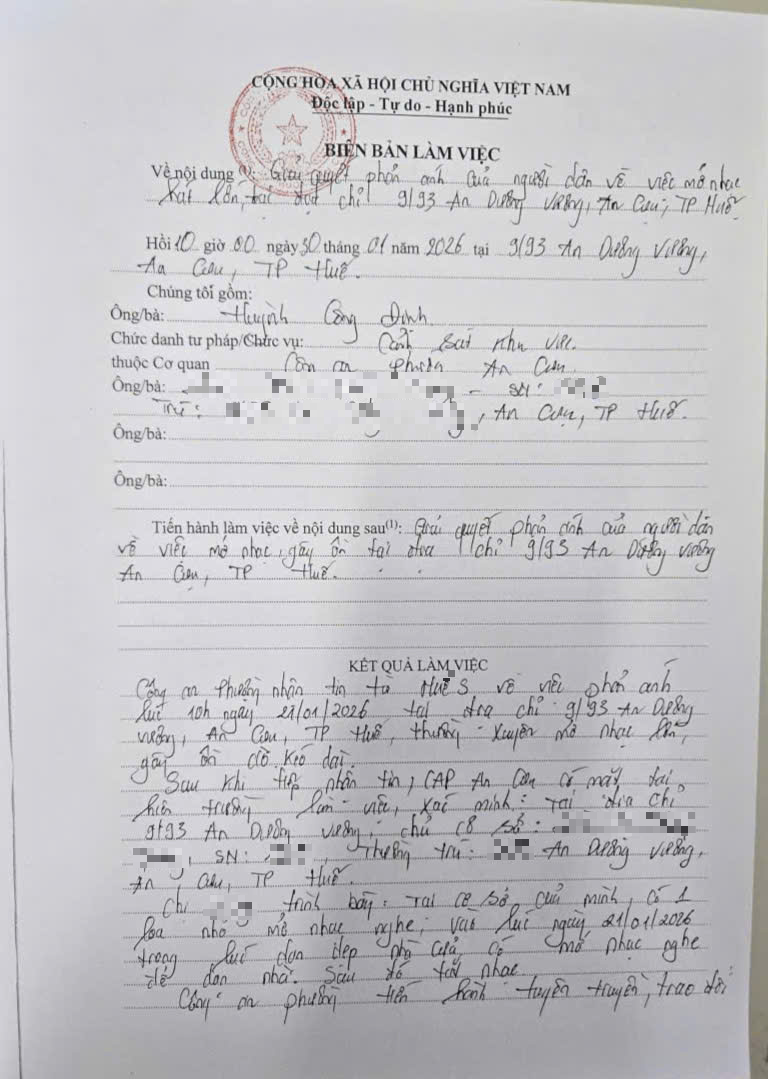 CỘNG HÒA XÃ HỘI CHỦ NGHĨA VIỆT NAM
Độc lập - Tự do - Hạnh phúc
BIÊN BẢN LÀM VIỆC
Về nội dung (1): Giải quyết phản ánh của người dân về việc mở nhạc
hát lớn, tại địa chỉ 9/93 An Dương Vương, An Cựu, TP Huế.
Hồi 10 giờ 00 ngày 30 tháng 01 năm 2026 tại 9/93 An Dương Vương,
An Cựu, TP Huế.
Chúng tôi gồm:
Ông/bà: Huỳnh Công Định
Chức danh tư pháp/Chức vụ: Cảnh sát khu vực
thuộc Cơ quan Công an phường An Cựu
Ông/bà: - SN:
Trú: , An Cựu, TP Huế.
Ông/bà:
Ông/bà:
Tiến hành làm việc về nội dung sau(1): Giải quyết phản ánh của người dân
về việc mở nhạc, gây ồn tại địa chỉ 9/93 An Dương Vương
An Cựu, TP Huế.
KẾT QUẢ LÀM VIỆC
Công an Phường nhận tin từ Huế S về việc phản ánh
lúc 10h ngày 21/01/2026 tại địa chỉ 9/93 An Dương
Vương, An Cựu, TP Huế, thường xuyên mở nhạc lớn,
gây ồn ào kéo dài.
Sau khi tiếp nhận tin, CAP An Cựu có mặt tại
hiện trường làm việc, xác minh: Tại địa chỉ
9/93 An Dương Vương, chủ cơ sở:
, SN: , Thường trú: An Dương Vương,
An Cựu, TP Huế.
Chị trình bày: Tại cơ sở của mình, có 1
loa nhỏ mở nhạc nghe, vào lúc ngày 21/01/2026
trong lúc dọn dẹp nhà cửa, có mở nhạc nghe
để dọn nhà. Sau đó tắt nhạc.
Công an phường tiến hành tuyên truyền, trao đổi